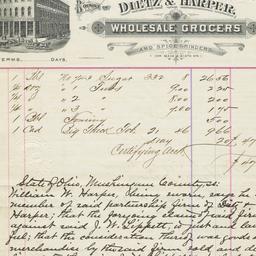 DIETZ & HARPER,
WHOLESALE GROCERS
AND SPICE GRINDERS.
TERMS, DAYS.
1 Bbl Sugar 332 8 26 56
" 1 Tubs 9 00 2 25
" 2 " 8 00 2 00
" 3 " 7 00 1 75
1 Bbl 5 00
1 Cad Big Thick Tob. 21 46 9 66
Certifying acct
State of Ohio, Muskingum County, ss:
William W. Harper, being sworn, says he
member of said partnership firm of Dietz &
Harper; that the foregoing claim of said firm
against said J. W. Lippitt, is just and law-
ful; that the consideration thereof was goods &
merchandise by the said firm sold and de